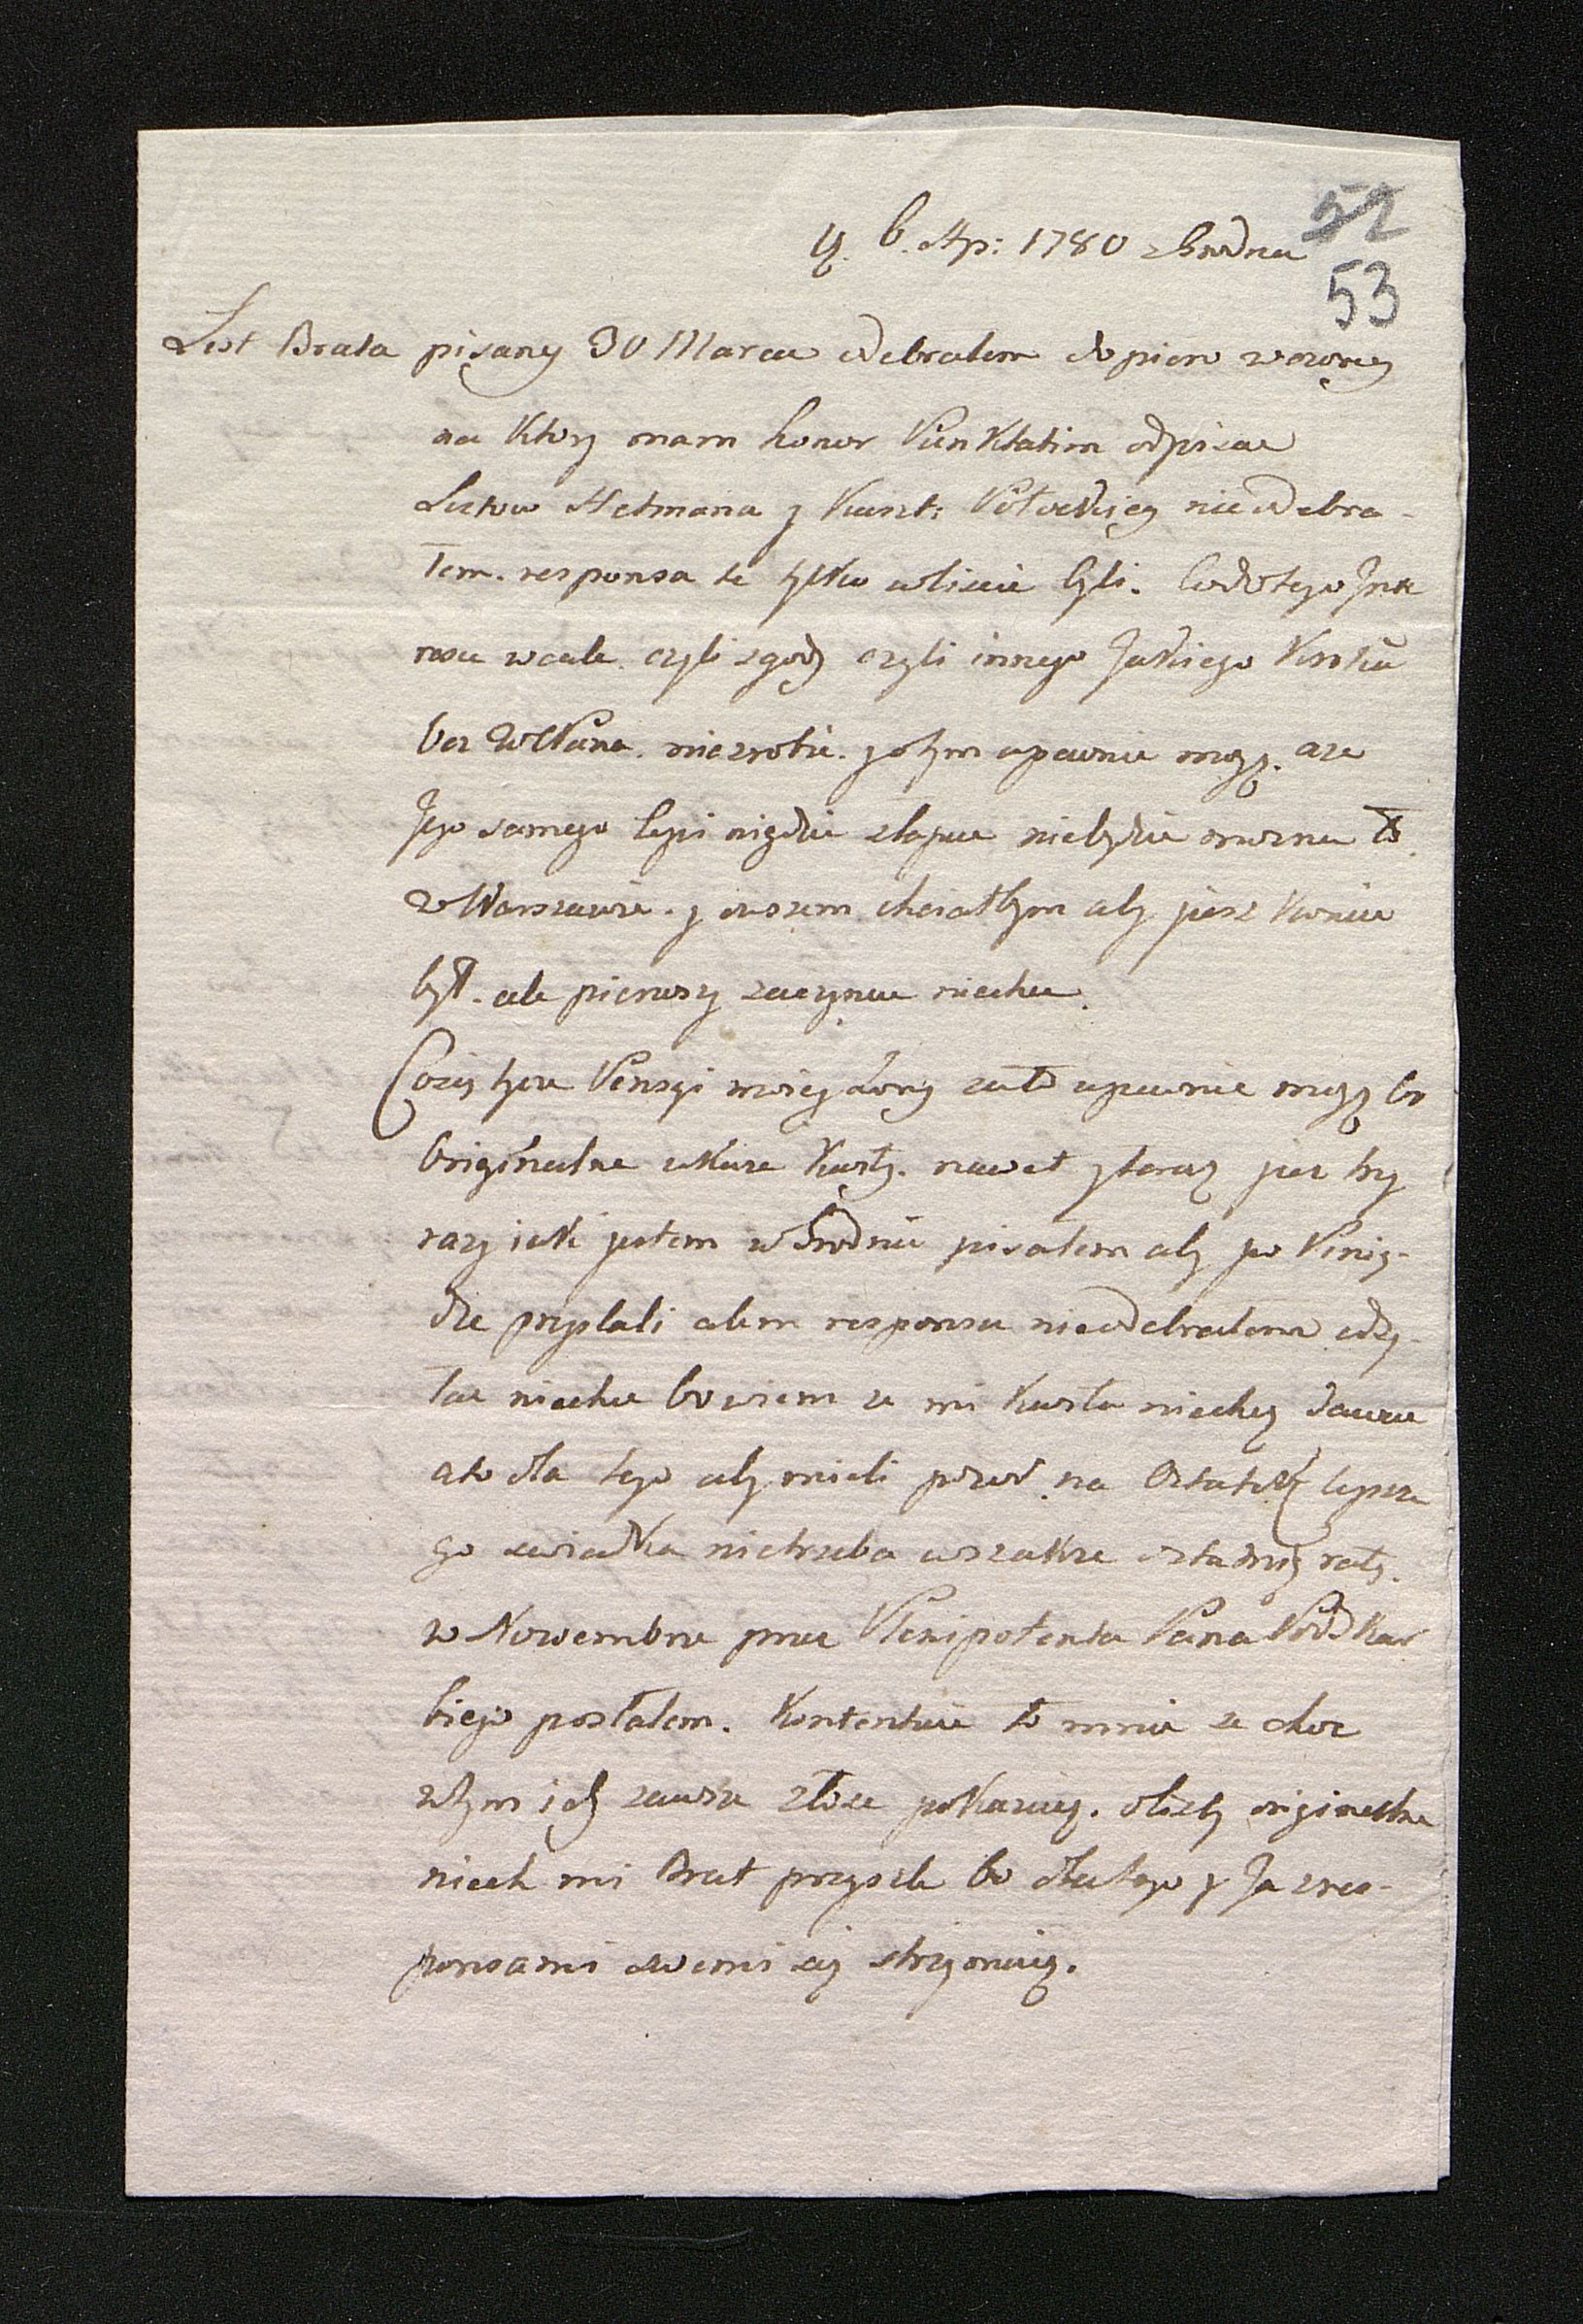 52
D. 6. Ap: 1780 z Grodna
53
List Brata pisany 30 Marca odebralem dopiero wczoray
na ktory mam honor Punktatim odpisac
Listow Hetmana y Kaszt: Potockiey nieodebra-
łem. responsa te tylko wliscie byli. Codotego Inte
resu wcale czyli zgody czyli innego Jakiego Kroku
bez WPana niezrobie. y otym upewnic mogę. aze
Jego samego lepi nigdzie złapac niebędzie mozna to
w Warszawie. y owszem chciałbym aby jusz Koniec
był. ale pierwszy zaczynac niechce.
Cożię tycze Pensyi moiey Zony zato upewnic mogę bo
Originalne ukaze Kwity. nawet y teraz jusz trzy
razy iak jestem w Grodnie pisalem aby po Pienią-
dze przysłali alem responsu nieodebralem odsy-
łac niechce bo wiem ze mi Kwita niechcą dawac
ato dla tego aby mieli pozor na Ostatek lepsze
go swiadka nietrzeba wszakze ostatnią ratę
w Nowembrze przez Plenipotenta Pana Podskar
biego posłalem. Kontentuie to mnie ze choc
wtym ich zawsze złosc pokazuię. Listy originalne
niech mi Brat przyszle bo dlatego y Ja zres-
ponsami swemi się strzymuię.